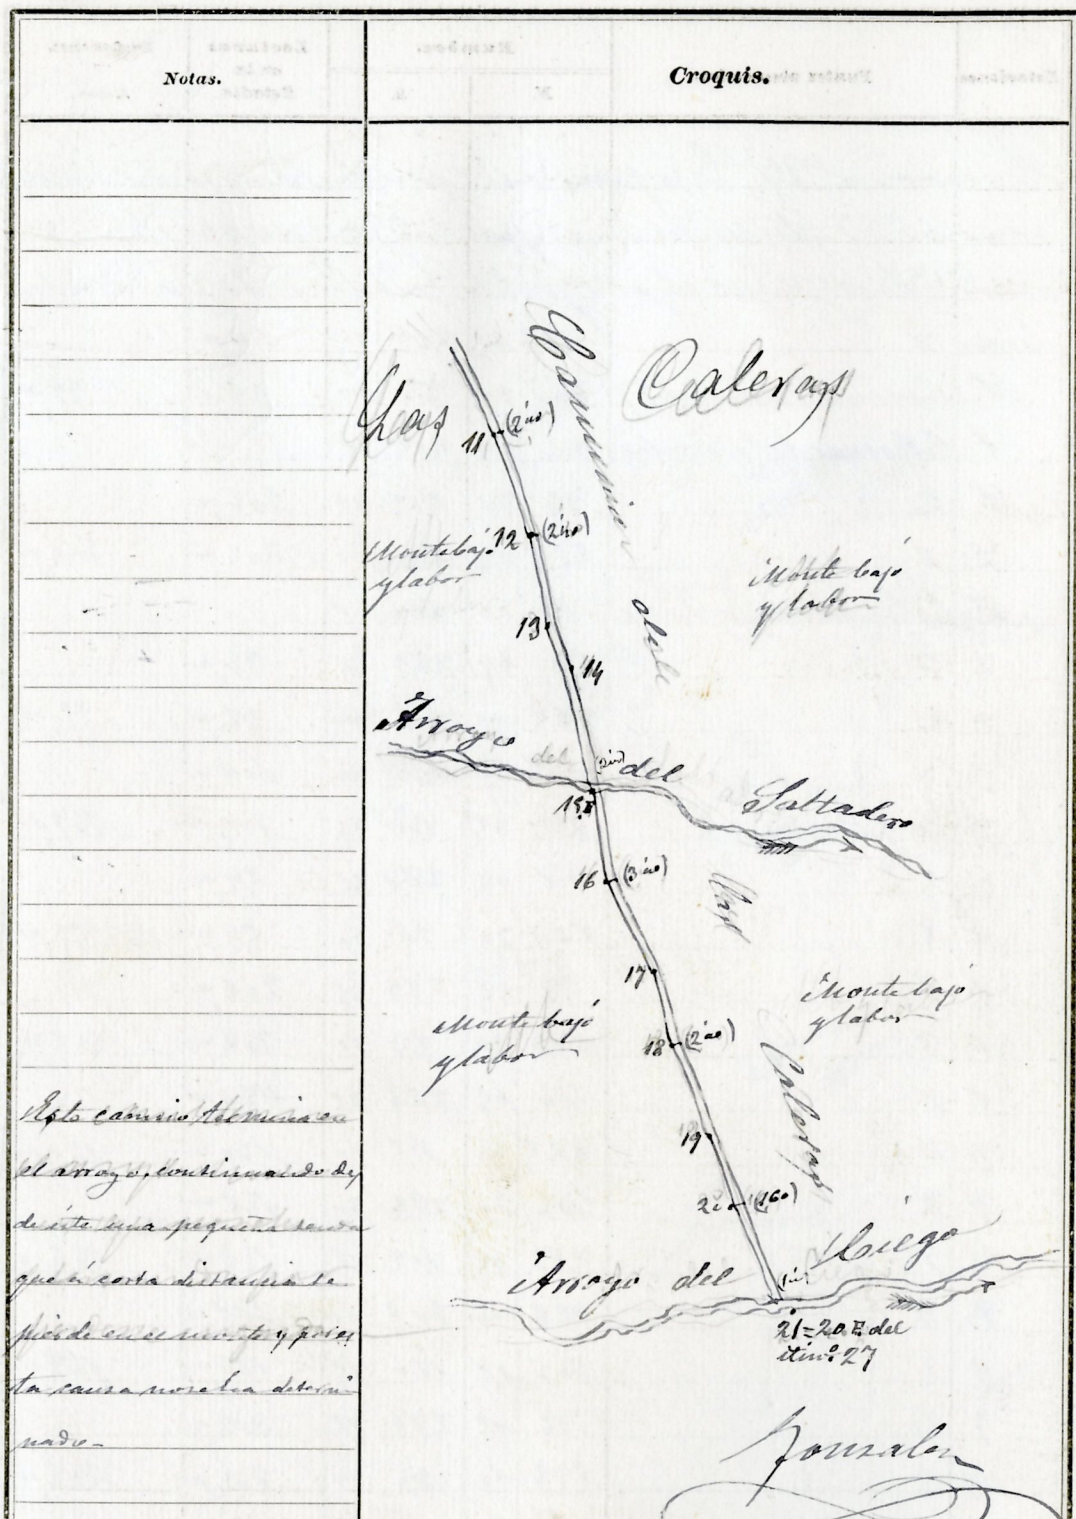 Notas.
Croquis.
Las
Caleras
Camino
de le
11 (2ª no)
12
Monte bajo
y labor
Monte bajo
y labor
13
14
Arroyo del Saltadero
15
16
las
17
Monte bajo
y labor
Monte bajo
y labor
18
Caleras
19
20
Arroyo del Ciego
21=20 E del
itinº 27
Este camino termina en
el arroyo, continuando des
de éste una pequeña senda
que á corta distancia se
pierde en el monte y por es
ta causa no se ha determi
nado-
Gonzalez